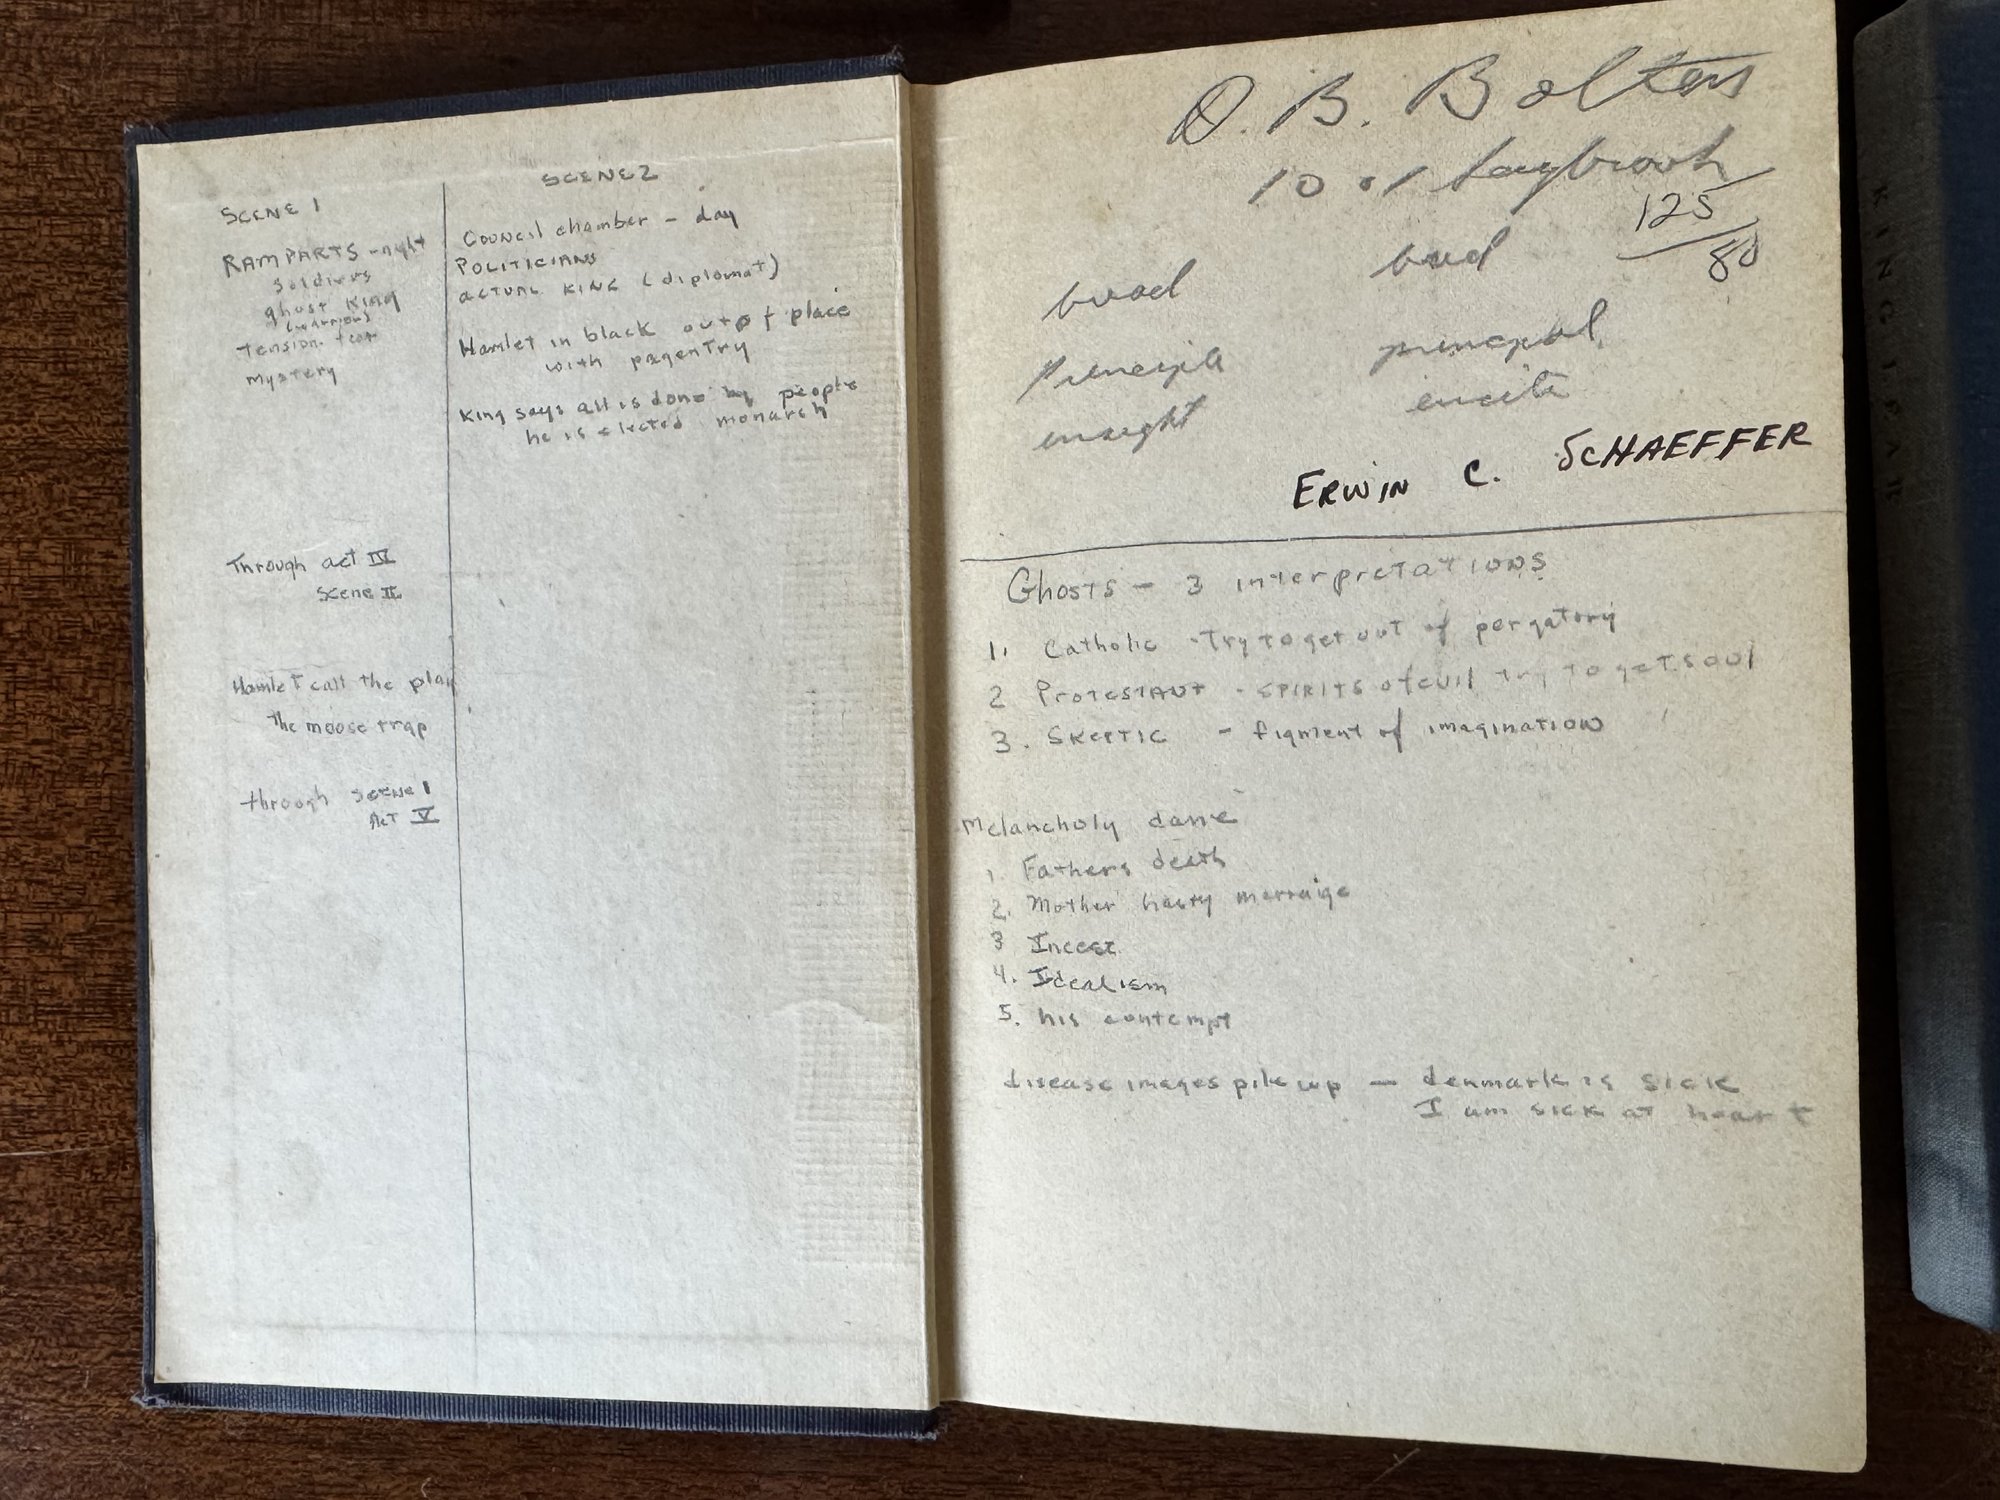 SCENE 1
RAMPARTS - night
Soldiers
ghost King
(warrior)
Tension fear
Mystery
Through act IV
Scene II
Hamlet call the play
The moose trap
through SCENE 1
ACT V
SCENE 2
Council chamber - day
POLITICIANS
ACTUAL KING (diplomat)
Hamlet in black out of place
with pagentry
King says all is done by people
he is elected monarch
D. B. Bolton
125
80
principle principal
insight incite
ERWIN C. SCHAEFFER
Ghosts - 3 interpretations
1. Catholic - Try to get out of pergatory
2 Protestant - SPIRITS of evil try to get soul
3. Skeptic - figment of imagination
Melancholy dane
1 Fathers death
2. Mother hasty merraige
3 Incest
4. Idealism
5. his contempt
disease images pile up - denmark is sick
I am sick at heart
KINGIGAR